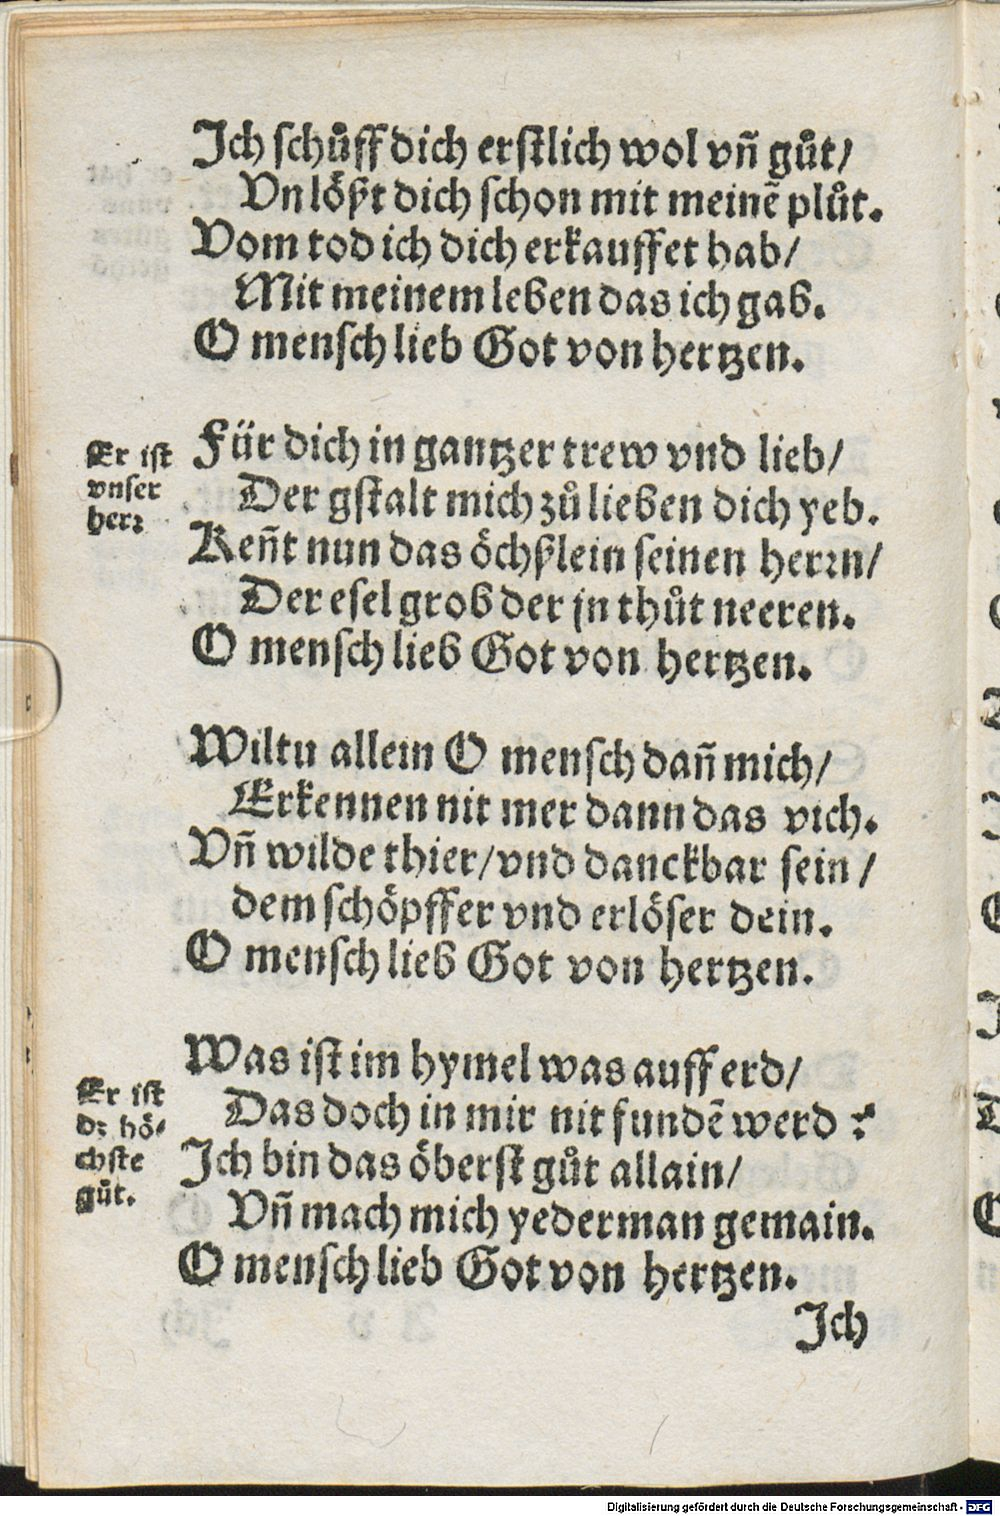 Ich schůff dich erstlich wol vñ gůt/
Vn lößt dich schon mit meinē plůt.
Vom tod ich dich erkauffet hab/
Mit meinem leben das ich gab.
O mensch lieb Got von hertzen.
Er ist
vnser
herꝛ
Für dich in gantzer trew vnd lieb/
Der gstalt mich zů lieben dich yeb.
Keñt nun das öchßlein seinen herꝛn/
Der esel grob der jn thůt neeren.
O mensch lieb Got von hertzen.
Wiltu allein O mensch dañ mich/
Erkennen nit mer dann das vich.
Vñ wilde thier/vnd danckbar sein/
dem schöpffer vnd erlöser dein.
O mensch lieb Got von hertzen.
Er ist
dꝛ hö-
chste
gůt.
Was ist im hymel was auff erd/
Das doch in mir nit fundē werd?
Ich bin das öberst gůt allain/
Vñ mach mich yederman gemain.
O mensch lieb Got von hertzen.
Ich
Digitalisierung gefördert durch die Deutsche Forschungsgemeinschaft - DFG